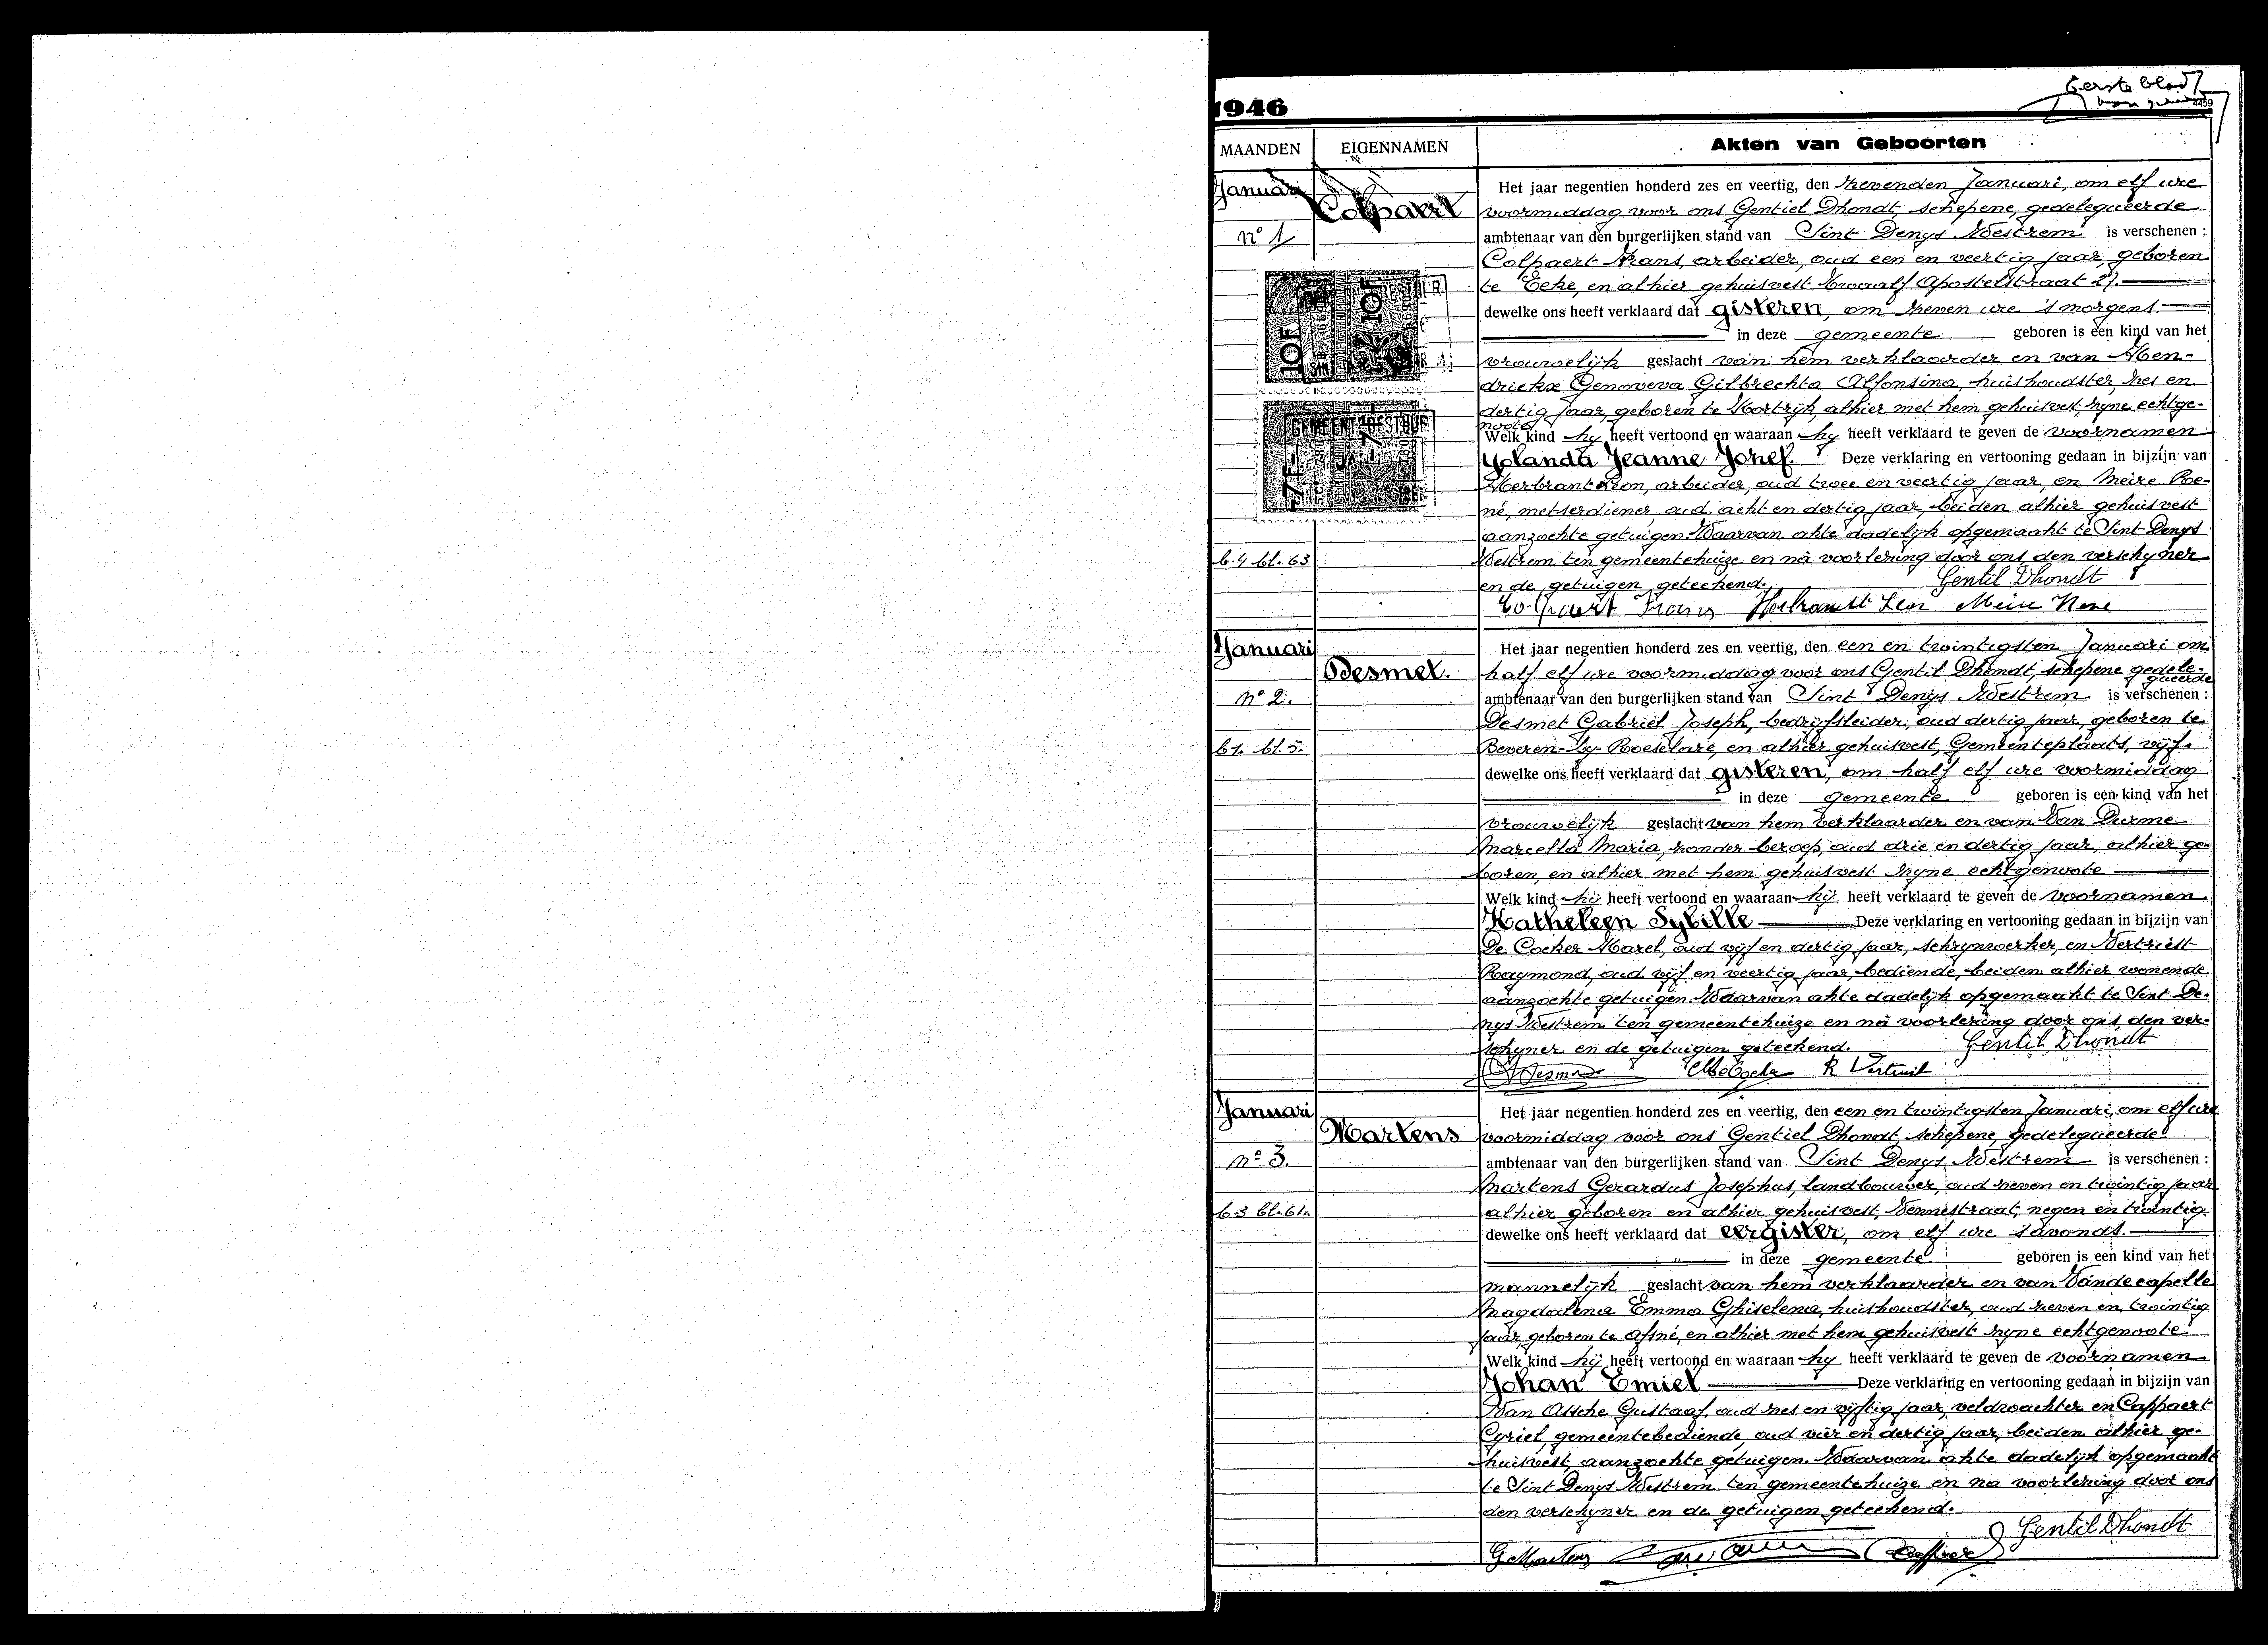 Eerste blad
1946
4459
MAANDEN
EIGENNAMEN
Akten van Geboorten
Januari
Colpaert
n° 1
10F
10F
7F
7
b.4 bl. 63
Het jaar negentien honderd zes en veertig, den zevenden Januari, om elf ure
voormiddag voor ons Gentiel Dhondt, schepene, gedelegueerde
ambtenaar van den burgerlijken stand van Sint Denys Westrem is verschenen :
Colpaert Frans, arbeider, oud een en veertig jaar, geboren
te Eeke, en alhier gehuisvest Twaalf Apostelstraat 27.
dewelke ons heeft verklaard dat gisteren, om zeven ure 's morgens.
in deze gemeente geboren is een kind van het
vrouwelijk geslacht van hem verklaarder en van Hen-
drickx Genoveva Gilbrechta Alfonsina, huishoudster, zes en
dertig jaar, geboren te Kortrijk, alhier met hem gehuisvest, zyne echtge-
noote
Welk kind hy heeft vertoond en waaraan hy heeft verklaard te geven de voornamen
Yolanda Jeanne Jozef. Deze verklaring en vertooning gedaan in bijzijn van
Herbrant Leon, arbeider, oud twee en veertig jaar, en Meire Re-
né, metserdiener, oud acht en dertig jaar, beiden alhier gehuisvest
aanzochte getuigen. Waarvan akte dadelijk opgemaakt te Sint Denys
Westrem ten gemeentehuize en nà voorlezing door ons, den verschyner
en de getuigen geteekend. Gentil Dhondt
Colpaert Frans Herbrandt Leon Meire René
Januari
Desmet.
n° 2.
b1. bl. 5.
Het jaar negentien honderd zes en veertig, den een en twintigsten Januari om
half elf ure voormiddag voor ons Gentil Dhondt, schepene gedele-
gueerde
ambtenaar van den burgerlijken stand van Sint Denys Westrem is verschenen :
Desmet Gabriël Joseph, bedrijfsleider, oud dertig jaar, geboren te
Beveren-by-Roeselare, en alhier gehuisvest, Gemeenteplaats, vijf.
dewelke ons heeft verklaard dat gisteren, om half elf ure voormiddag
in deze gemeente geboren is een kind van het
vrouwelijk geslacht van hem verklaarder en van Van Durme
Marcella Maria, zonder beroep, oud drie en dertig jaar, alhier ge-
boren, en alhier met hem gehuisvest zyne echtgenoote
Welk kind hij heeft vertoond en waaraan hij heeft verklaard te geven de voornamen
Katheleen Sybille Deze verklaring en vertooning gedaan in bijzijn van
De Cocker Karel, oud vijf en dertig jaar, schrynwerker, en Vertriest
Raymond, oud vijf en veertig jaar, bediende, beiden alhier wonende
aanzochte getuigen. Waarvan akte dadelijk opgemaakt te Sint De-
nys Westrem ten gemeentehuize en nà voorlezing door ons den ver-
schyner en de getuigen geteekend. Gentil Dhondt
R Vertriest
Januari
Martens
n° 3.
b 3 bl. 61.
Het jaar negentien honderd zes en veertig, den een en twintigsten Januari, om elf ure
voormiddag voor ons Gentiel Dhondt, schepene, gedelegueerde
ambtenaar van den burgerlijken stand van Sint Denys Westrem is verschenen :
Martens Gerardus Josephus, landbouwer, oud zeven en twintig jaar
alhier geboren en alhier gehuisvest, Vennestraat, negen en twintig
dewelke ons heeft verklaard dat eergister, om elf ure 's avonds.
in deze gemeente geboren is een kind van het
mannelijk geslacht van hem verklaarder en van Vandecapelle
Magdalena Emma Ghislena, huishoudster, oud zeven en twintig
jaar, geboren te Afsné, en alhier met hem gehuisvest zyne echtgenoote.
Welk kind hij heeft vertoond en waaraan hy heeft verklaard te geven de voornamen
Johan Emiel Deze verklaring en vertooning gedaan in bijzijn van
Van Assche Gustaaf, oud zes en vijftig jaar, veldwachter en Cappaert
Cyriel, gemeentebediende, oud vier en dertig jaar, beiden alhier ge-
huisvest, aanzochte getuigen. Waarvan akte dadelijk opgemaakt
te Sint Denys Westrem ten gemeentehuize en na voorlezing door ons
den verschyner en de getuigen geteekend.
Gentil Dhondt
G. Martens